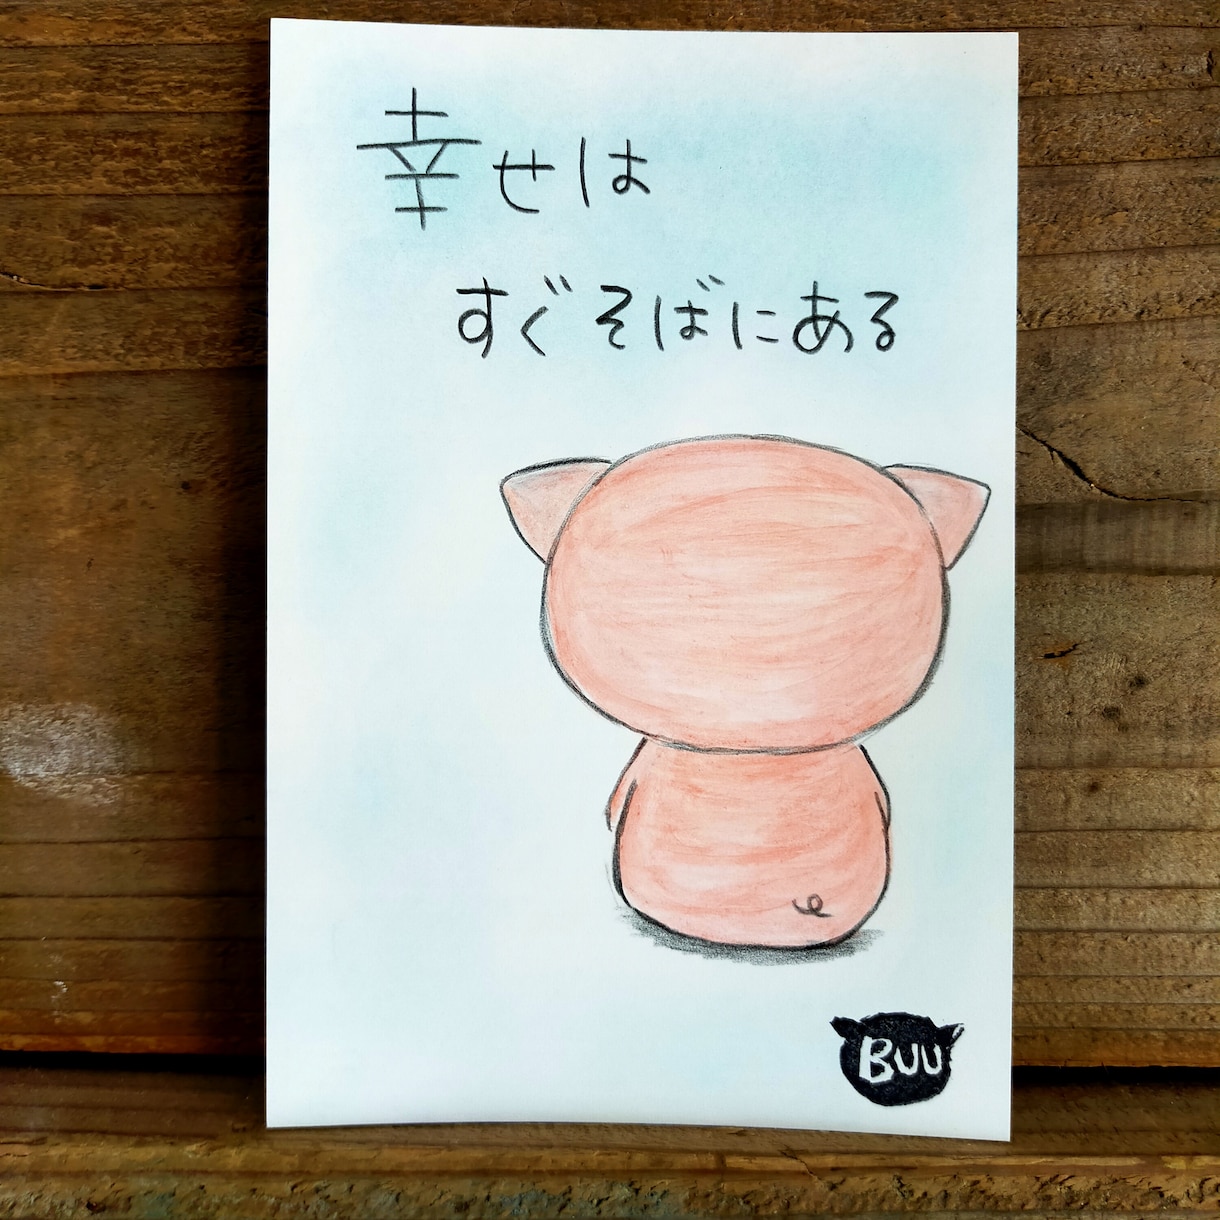 幸せは
すぐそばにある
BUU